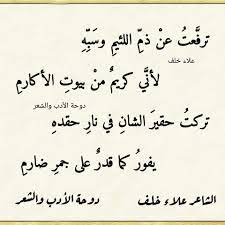 ترفَّعتُ عنْ ذمِّ اللئيمِ وسَبِّهِ
علاء خلف
لأنَّي كريمٌ منْ بيوتِ الأكارمِ
دوحة الأدب والشعر
تركتُ حقيرَ الشانِ في نارِ حقدهِ
يفورُ كما قدرٌ على جمرِ ضارمِ
الشاعر علاء خلف دوحة الأدب والشعر